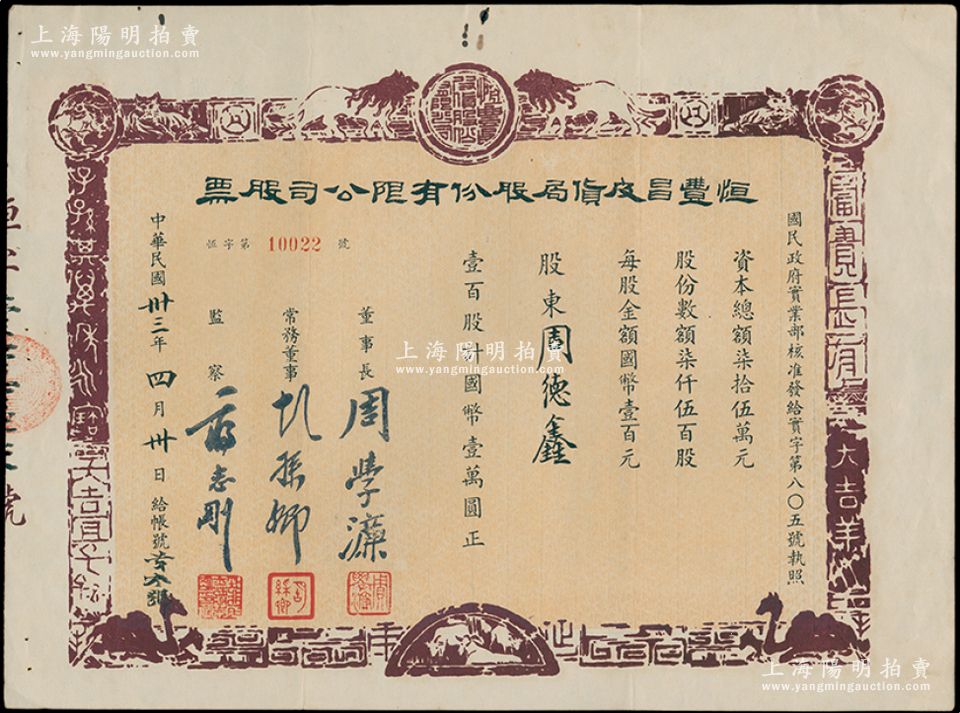 上海陽明拍賣
www.yangmingauction.com
上海陽明拍賣
www.yangmingauction.com
恒豐昌皮貨局股份有限公司股票
國民政府實業部核准發給實字第八〇五號執照
資本總額柒拾伍萬元
股份數額柒仟伍百股
每股金額國幣壹百元
股東周德鑫
壹百股計國幣壹萬圓正
恆字第 10022 號
董事長 周學濂
常務董事
監察 志剛
中華民國卅三年四月卅日給帳號
富貴長有
大吉羊
子孫其
大吉宜
號
上海陽明拍賣
www.yangmingauction.com
上海陽明拍賣
www.yangmingauction.com